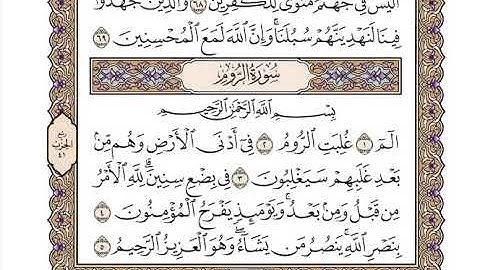 أَلَيْسَ فِي جَهَنَّمَ مَثْوًى لِّلْكَٰفِرِينَ ٦٨ وَٱلَّذِينَ جَٰهَدُوا۟
فِينَا لَنَهْدِيَنَّهُمْ سُبُلَنَا ۚ وَإِنَّ ٱللَّهَ لَمَعَ ٱلْمُحْسِنِينَ ٦٩
سُورَةُ الرُّومِ
بِسْمِ ٱللَّهِ ٱلرَّحْمَٰنِ ٱلرَّحِيمِ
الٓمٓ ١ غُلِبَتِ ٱلرُّومُ ٢ فِىٓ أَدْنَى ٱلْأَرْضِ وَهُم مِّنۢ
بَعْدِ غَلَبِهِمْ سَيَغْلِبُونَ ٣ فِى بِضْعِ سِنِينَ ۗ لِلَّهِ ٱلْأَمْرُ
مِن قَبْلُ وَمِنۢ بَعْدُ ۚ وَيَوْمَئِذٍ يَفْرَحُ ٱلْمُؤْمِنُونَ ٤
بِنَصْرِ ٱللَّهِ ۚ يَنصُرُ مَن يَشَآءُ ۖ وَهُوَ ٱلْعَزِيزُ ٱلرَّحِيمُ ٥
ربع
الحزب
٤١